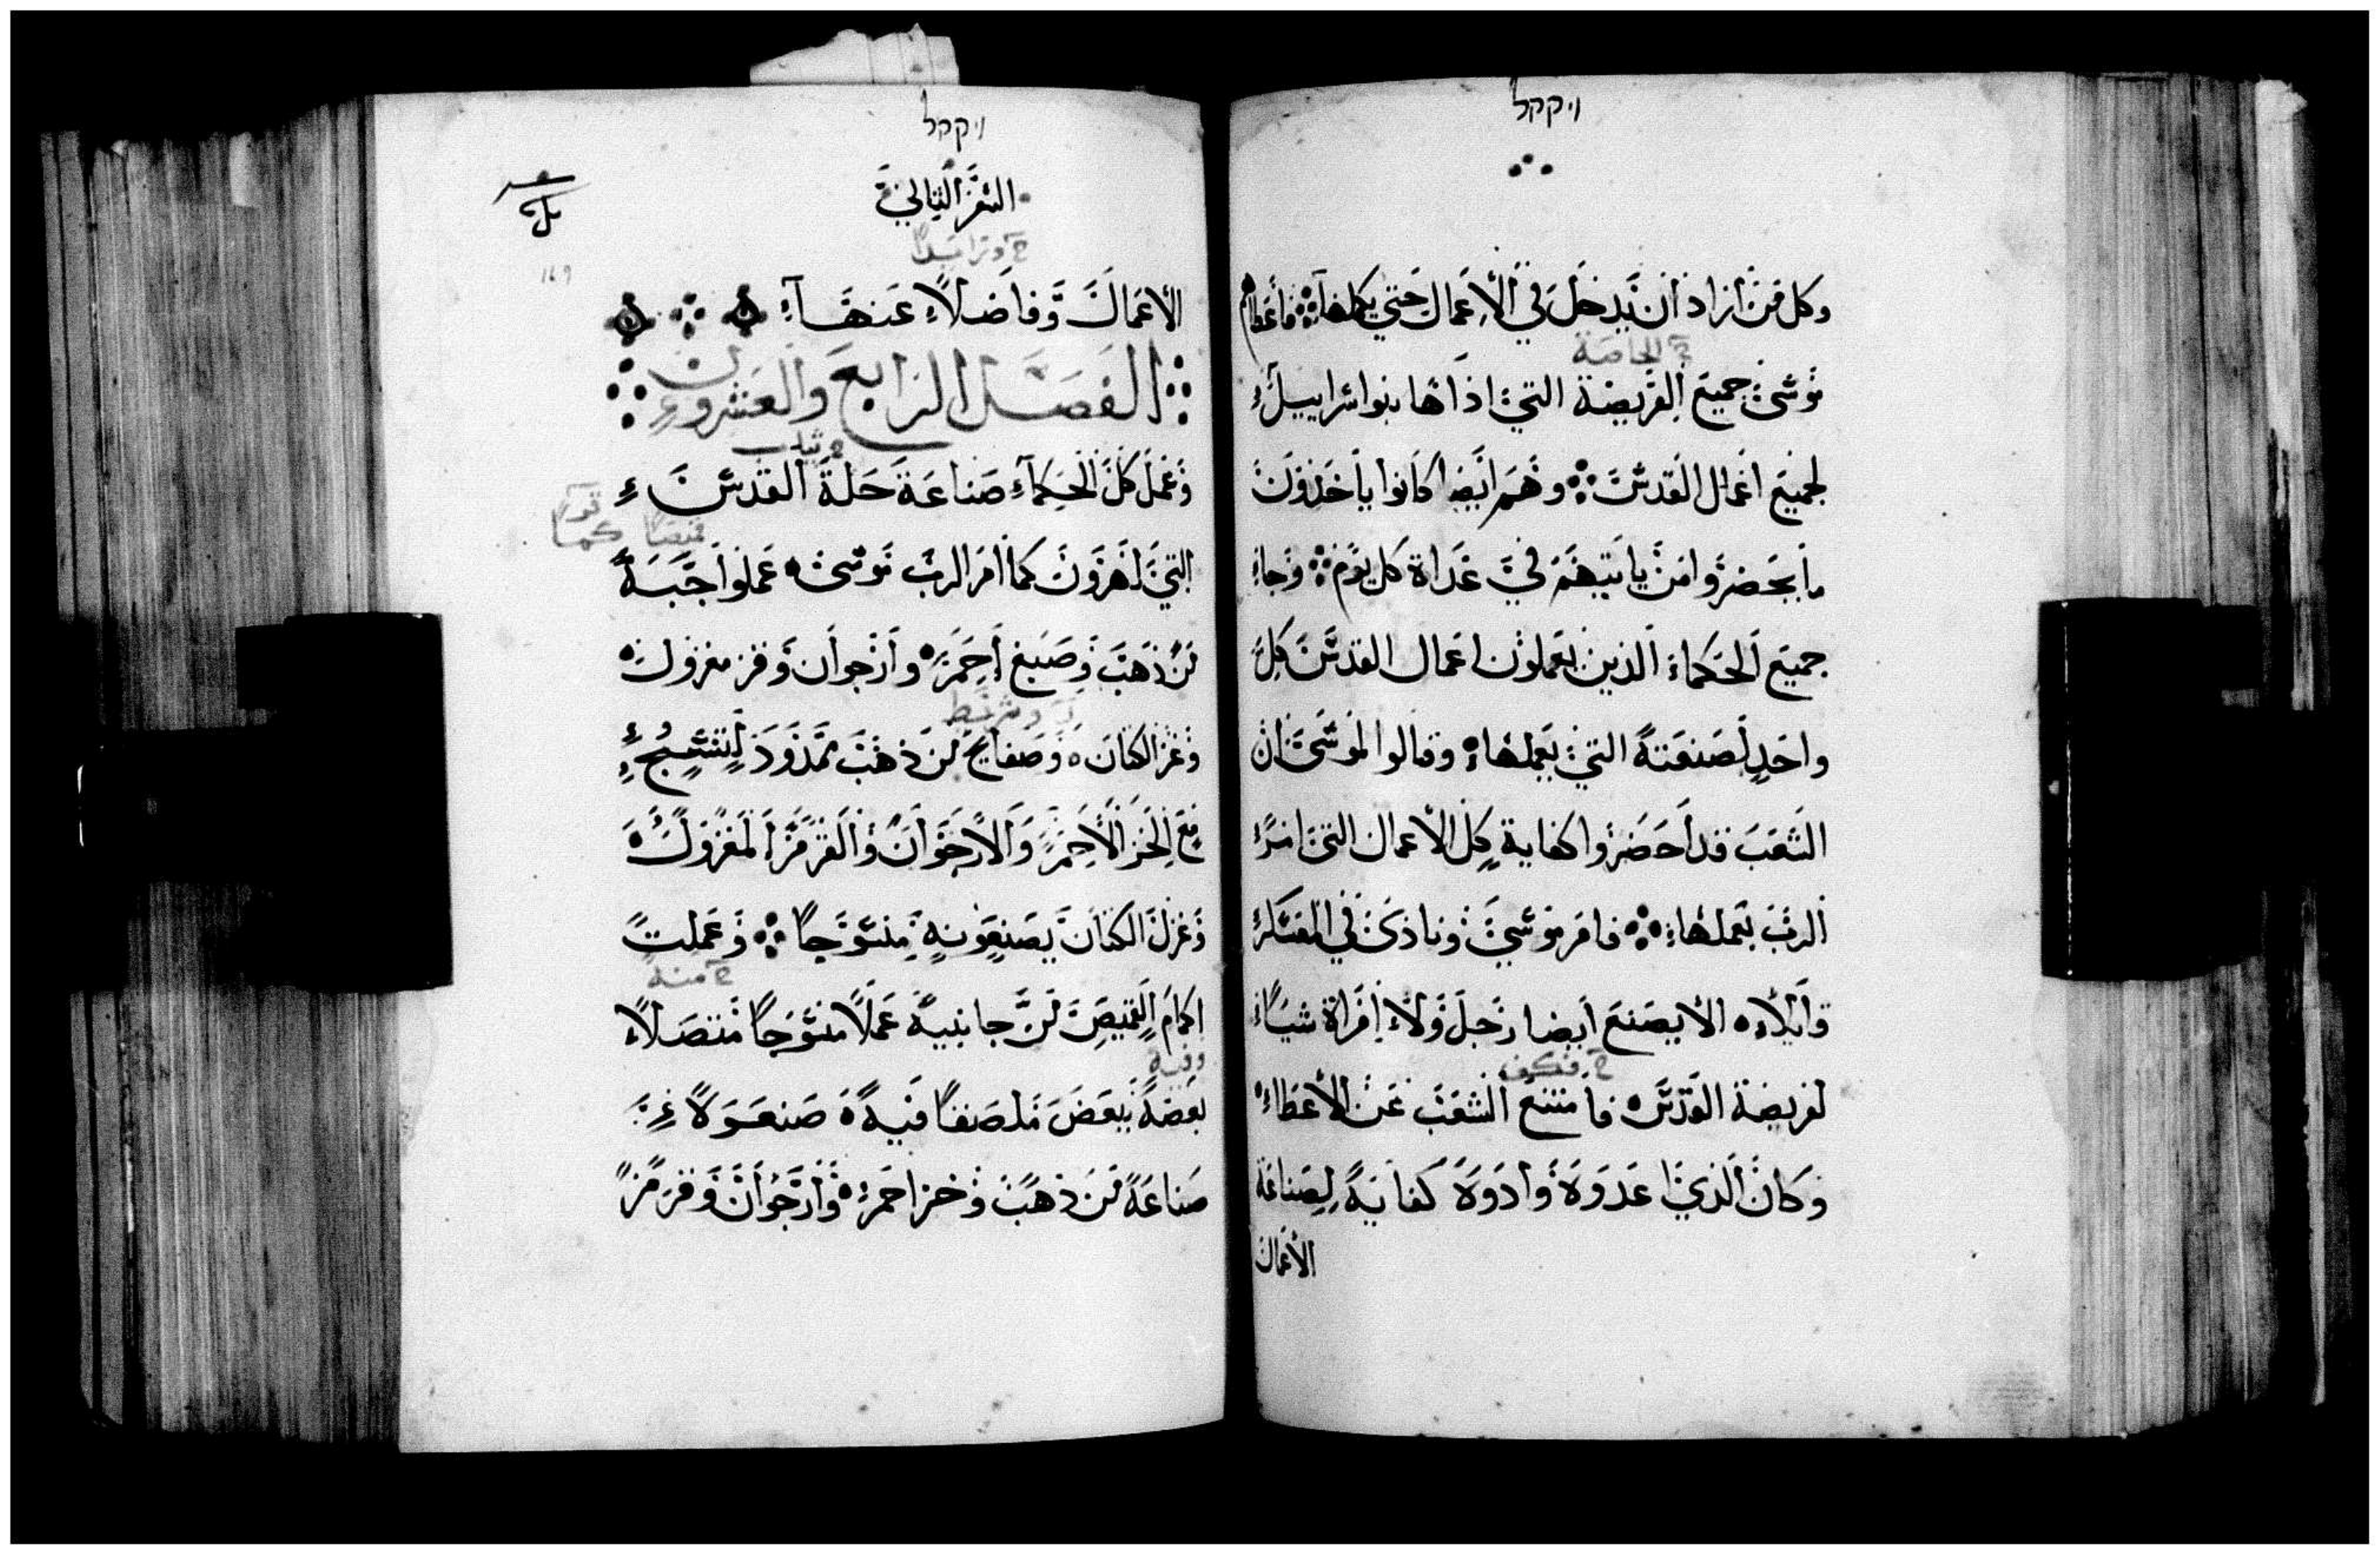 ויקהל
وكل من اراد ان يدخل في الاعمال حتي يكملها فاعطاهم
خ الخاصة
موسى جميع الفريضة التي اداها بنوا اسراييل
لجميع اعمال القدس وهم ايضا كانوا ياخذون
ما يحضروا من ياتيهم في غداة كل يوم وجاء
جميع الحكماء الذين يعملون اعمال القدس كل
واحد لصنعته التي يعملها وقالوا لموسى ان
الشعب قد احضروا كفاية كل الاعمال التي امر
الرب بعملها فامر موسي ونادى في العسكر
قايلا الا يصنع ايضا رجل ولا امراة شيا
خ فكف
لفريضة القدس فامتنع الشعب عن الاعطاء
وكان الذي اعدوه وادوه كفاية لصناعة
الاعمال
ויקהל
السفر الثاني
169
خ وزايدا
الاعمال وفاضلا عنها
الفصل الرابع والعشرون
خ ثياب
وعمل كل الحكماء صناعة حلة القدس
التي لهرون كما امر الرب موسى عملوا جبة
من ذهب وصبغ احمر وارجوان وقرمز مغزول
وغزل كتان وصفايح من ذهب ممدود لينسج
مع الخز الاحمر والارجوان والقرمز المغزول
وغزل الكتان يصنعونه منسوجا وعملت
خ منه
اكمام القميص من جانبيه عملا منسوجا متصلا
بعضه ببعض ملصفا فيه صنعوه
صناعة من ذهب وخز احمر وارجوان وقرمز